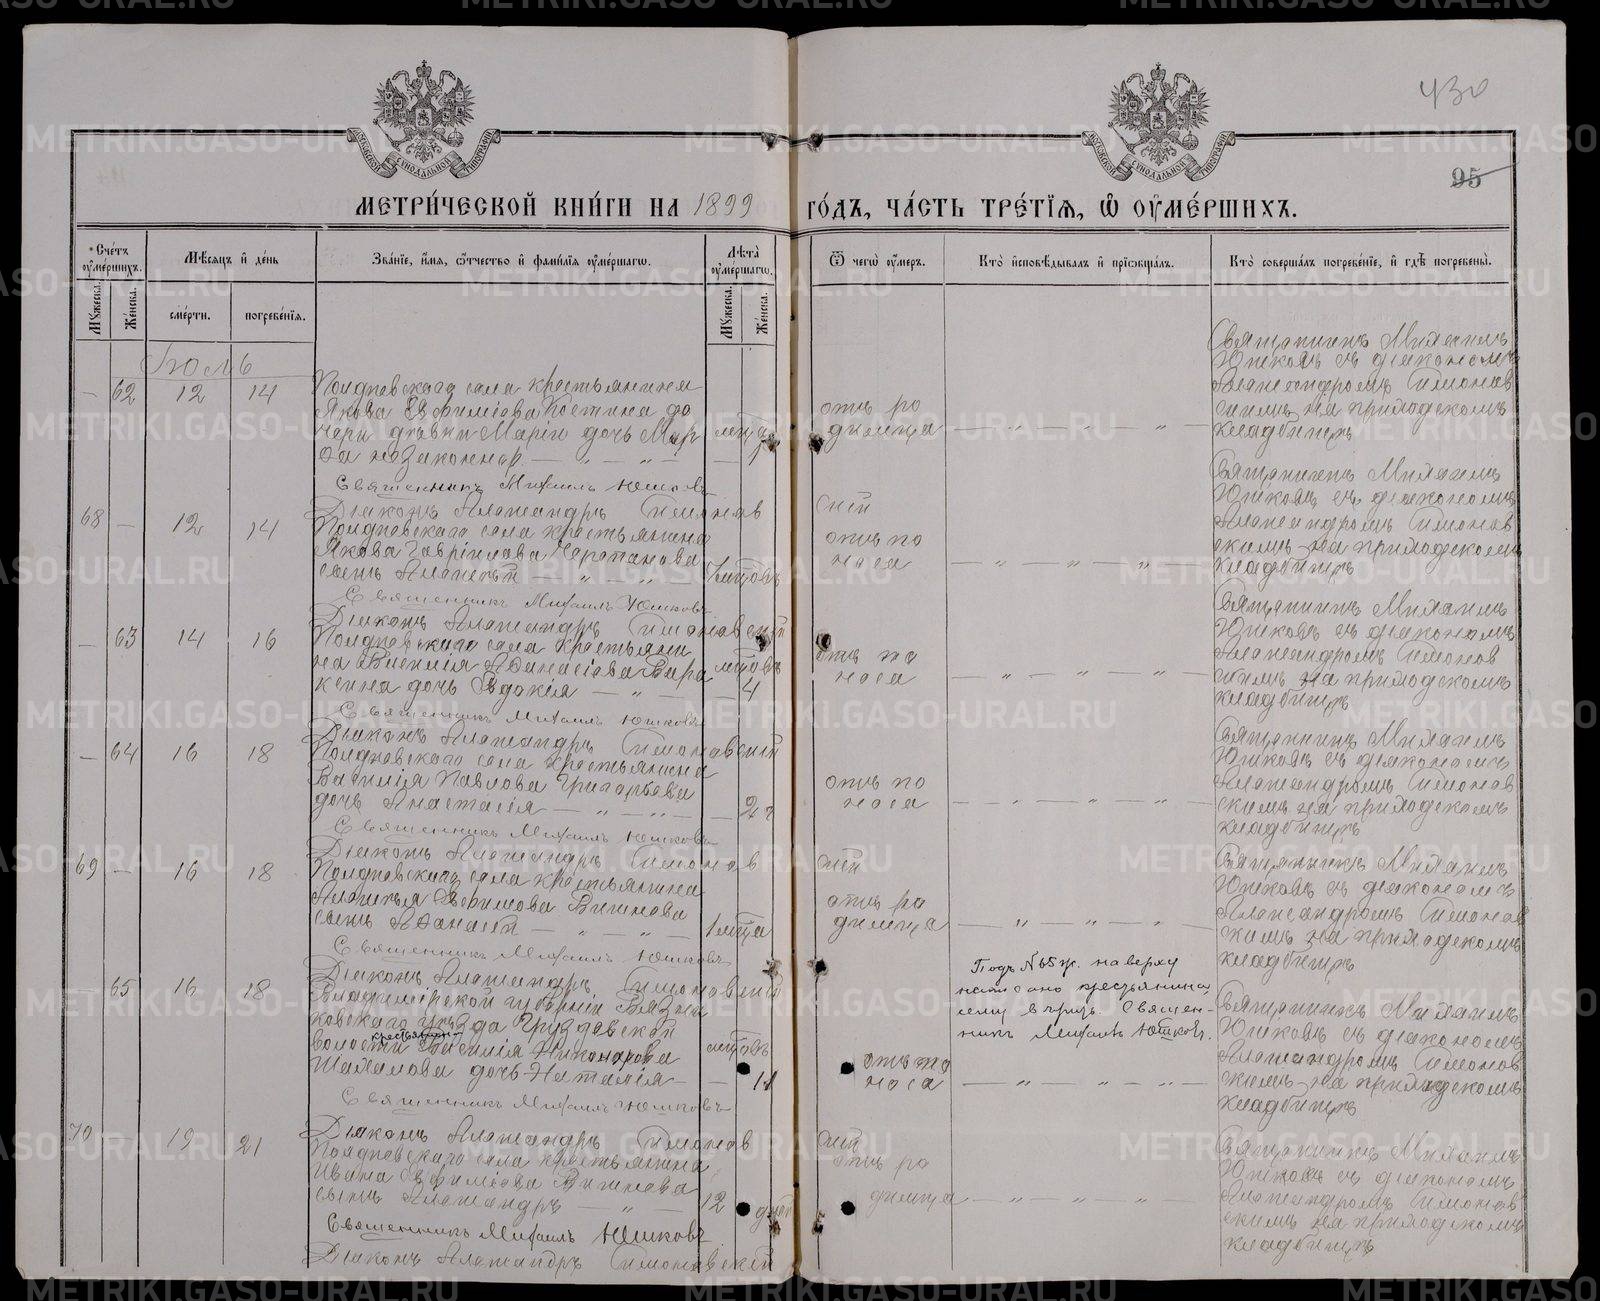 430
95
МОСКОВСКОЙ СѴНОДАЛЬНОЙ ТИПОГРАФІИ
МОСКОВСКОЙ СѴНОДАЛЬНОЙ ТИПОГРАФІИ
МЕТРИ́ЧЕСКОЙ КНИ́ГИ НА 1899 ГО́ДЪ, ЧА́СТЬ ТРЕ́ТІѦ, Ѡ҆ ОУ҆МЕ́РШИХЪ.
Сче́тъ оу҆ме́ршихъ.
Мѣ́сѧцъ и҆ де́нь
Зва́нїе, и҆́мѧ, ѻ҆́тчество и҆ фами́лїѧ оу҆ме́ршагѡ.
Лѣ́та оу҆ме́ршагѡ.
Ѿ чегѡ̀ оу҆́меръ.
Кто̀ и҆сповѣ́дывалъ и҆ прїѡбща́лъ.
Кто̀ соверша́лъ погребе́нїе, и҆ гдѣ̀ погребены̀.
Мꙋ́жеска.
Же́нска.
сме́рти.
погребе́нїѧ.
Мꙋ́жеска.
Же́нска.
Іюль
— 62 12 14
Полдневскаго села крестьянина
Якова Евфиміева Костина до
чери дѣвки Маріи дочь Мар
фа незаконнор. — " — " —
отъ ро
димца
Священникъ Михаилъ
Юшковъ съ діакономъ
Александромъ Симонов
скимъ на приходскомъ
кладбищѣ
Священникъ Михаилъ Юшковъ
Діаконъ Александръ Симоновскій
68 — 12 14
Полдневскаго села крестьянина
Якова Гавріилова Черепанова
сынъ Алексѣй — " — " —
отъ по
носа
Священникъ Михаилъ
Юшковъ съ діакономъ
Александромъ Симонов
скимъ на приходскомъ
кладбищѣ
Священникъ Михаилъ Юшковъ
Діаконъ Александръ Симоновскій
— 63 14 16
Полдневскаго села крестьяни
на Василія Аѳанасіева
дочь Евдокія — " —
мѣсяцовъ
4
отъ по
носа
Священникъ Михаилъ
Юшковъ съ діакономъ
Александромъ Симонов
скимъ на приходскомъ
кладбищѣ
Священникъ Михаилъ Юшковъ
Діаконъ Александръ Симоновскій
— 64 16 18
Полдневскаго села крестьянина
Василія Павлова Григорьева
дочь Анастасія — " — " — 2 г
отъ по
носа
Священникъ Михаилъ
Юшковъ съ діакономъ
Александромъ Симонов
скимъ на приходскомъ
кладбищѣ
Священникъ Михаилъ Юшковъ
Діаконъ Александръ Симоновскій
69 — 16 18
Полдневскаго села крестьянина
Алексѣя Ефимова
сынъ Аѳанасій — " — " —
отъ ро
димца
Священникъ Михаилъ
Юшковъ съ діакономъ
Александромъ Симонов
скимъ на приходскомъ
кладбищѣ
Священникъ Михаилъ Юшковъ
Діаконъ Александръ Симоновскій
— 65 16 18
Владимірской губерніи Вязни
ковскаго уѣзда Груздевской
крестьянина
волости Василія Никонорова
Шахалова дочь Наталія —
11
отъ по
носа
Подъ № 65 ж. наверху
написано крестьянина,
сему вѣрить. Священ-
никъ Михаилъ Юшковъ.
Священникъ Михаилъ
Юшковъ съ діакономъ
Александромъ Симонов
скимъ на приходскомъ
кладбищѣ
Священникъ Михаилъ Юшковъ
Діаконъ Александръ Симоновскій
70 19 21
Полдневскаго села крестьянина
Ивана Евфиміева
сынъ Александръ — " — 12 дней
отъ ро
димца
Священникъ Михаилъ
Юшковъ съ діакономъ
Александромъ Симонов
скимъ на приходскомъ
кладбищѣ
Священникъ Михаилъ Юшковъ
Діаконъ Александръ Симоновскій
METRIKI.GASO-URAL.RU